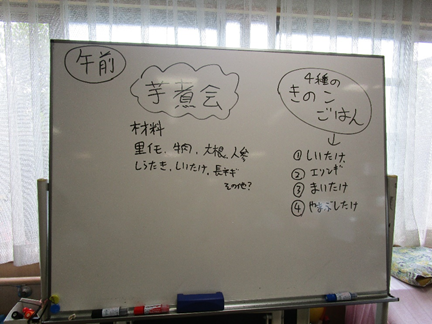 午前
芋煮会
材料
里芋、牛肉、大根、人参
しらたき、しいたけ、長ネギ
その他?
4種の
きのこ
ごはん
↓
① しいたけ
② エリンギ
③ まいたけ
④ やまぶしたけ